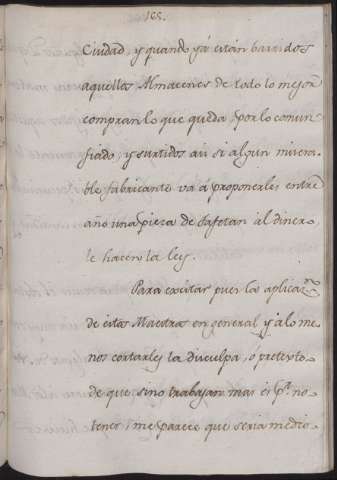 Ciudad, y quando yá están barridos
aquellos Almacenes de todo lo mejor
compran lo que queda, por lo comun
fiado; y surtidos asi si algun misera-
ble fabricante va á proponerles entre
año una pieza de tafetan al dinero,
le hacen la ley.
Para excitar pues la aplicaz.on
de estas Maestras en general y á lo me-
nos cortarles la disculpa, ó pretexto
de que sino trabajan mas es p.r no
tener, me parece que seria medio